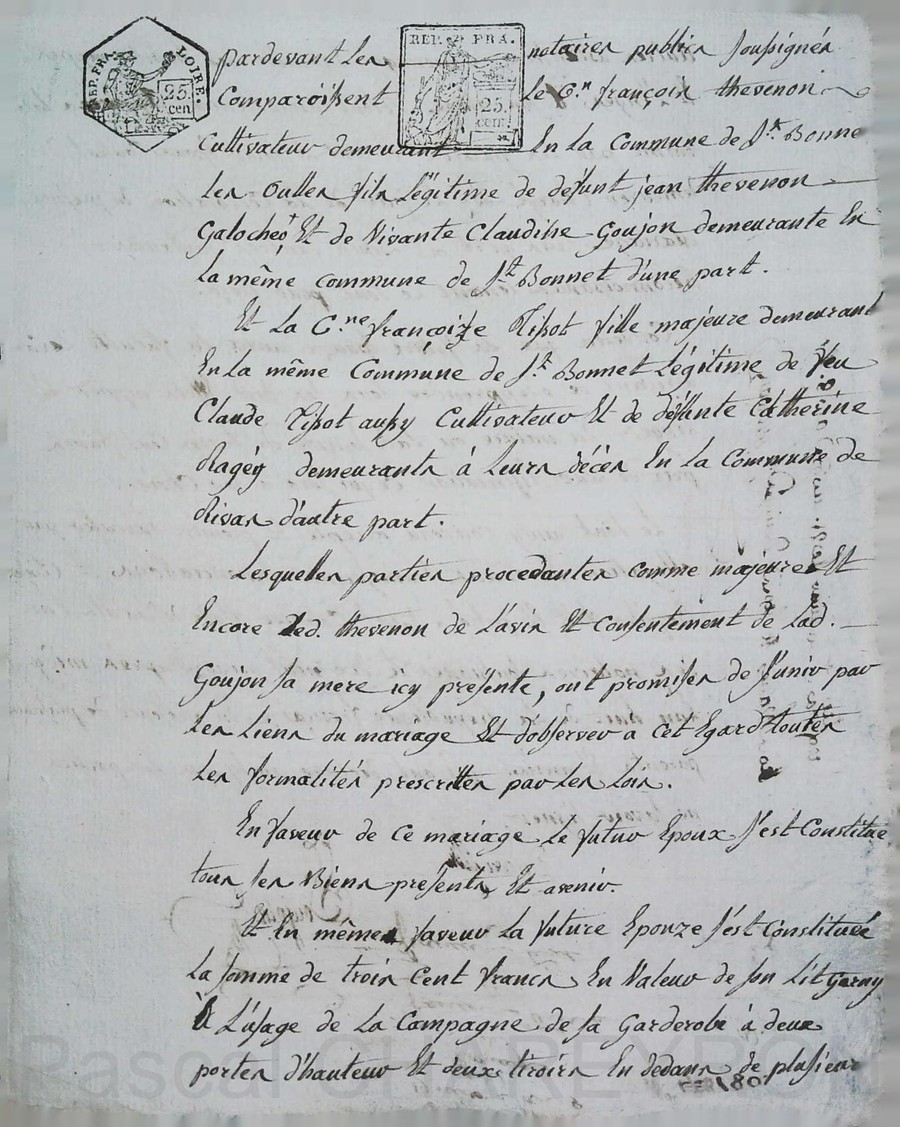 REP. FRA. LOIRE. 25 cen
REP. FRA. 25 cen.
pardevant Les notaires publics soussignés
Comparoissent Le C.en françois thevenon
Cultivateur demeurant En La Commune de St. Bonne
Les Oulles fils Légitime de defunt jean thevenon
Galochet, Et de Vivante Claudine Goujon demeurante En
La même commune de St Bonnet d'une part.
Et La C.ne françoize Tissot fille majeure demeurant
En La même Commune de St. Bonnet Légitime de feu
Claude Tissot aussy Cultivateur Et de défunte Catherine
Ragéy demeurants à Leurs décès En La Commune de
Rivas d'autre part.
Lesquelles parties procedantes comme majeures Et
Encore Led. thevenon de L'avis Et Consentement de Lad.
Goujon sa mere icy présente, ont promises de s'unir par
Les Liens du mariage Et d'observer a cet Egard toutes
Les formalités prescrittes par Les Loix.
En faveur de Ce mariage Le futur Epoux s'est Constitué
tous ses Biens présents Et avenir.
Et En même faveur La future Epouze s'est Constituée
La somme de trois Cent francs En Valeur de son Lit garny
à L'usage de La Campagne de sa Garderobe à deux
portes d'hauteur Et deux tiroirs En dedans de plusieur
180
Pascal